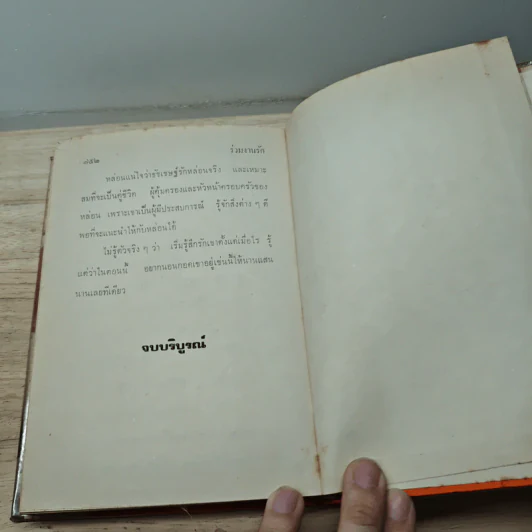 ๘๕๒ ร่วมงานรัก
หล่อนแน่ใจว่าชัชเรษฐ์รักหล่อนจริง และเหมาะ
สมที่จะเป็นคู่ชีวิต ผู้คุ้มครองและหัวหน้าครอบครัวของ
หล่อน เพราะเขาเป็นผู้มีประสบการณ์ รู้จักสิ่งต่าง ๆ ดี
พอที่จะแนะนำให้กับหล่อนได้
ไม่รู้ตัวจริง ๆ ว่า เริ่มรู้สึกรักเขาตั้งแต่เมื่อไร รู้
แต่ว่าในตอนนี้ อยากนอนกอดเขาอยู่เช่นนี้ให้นานแสน
นานเลยทีเดียว
จบบริบูรณ์